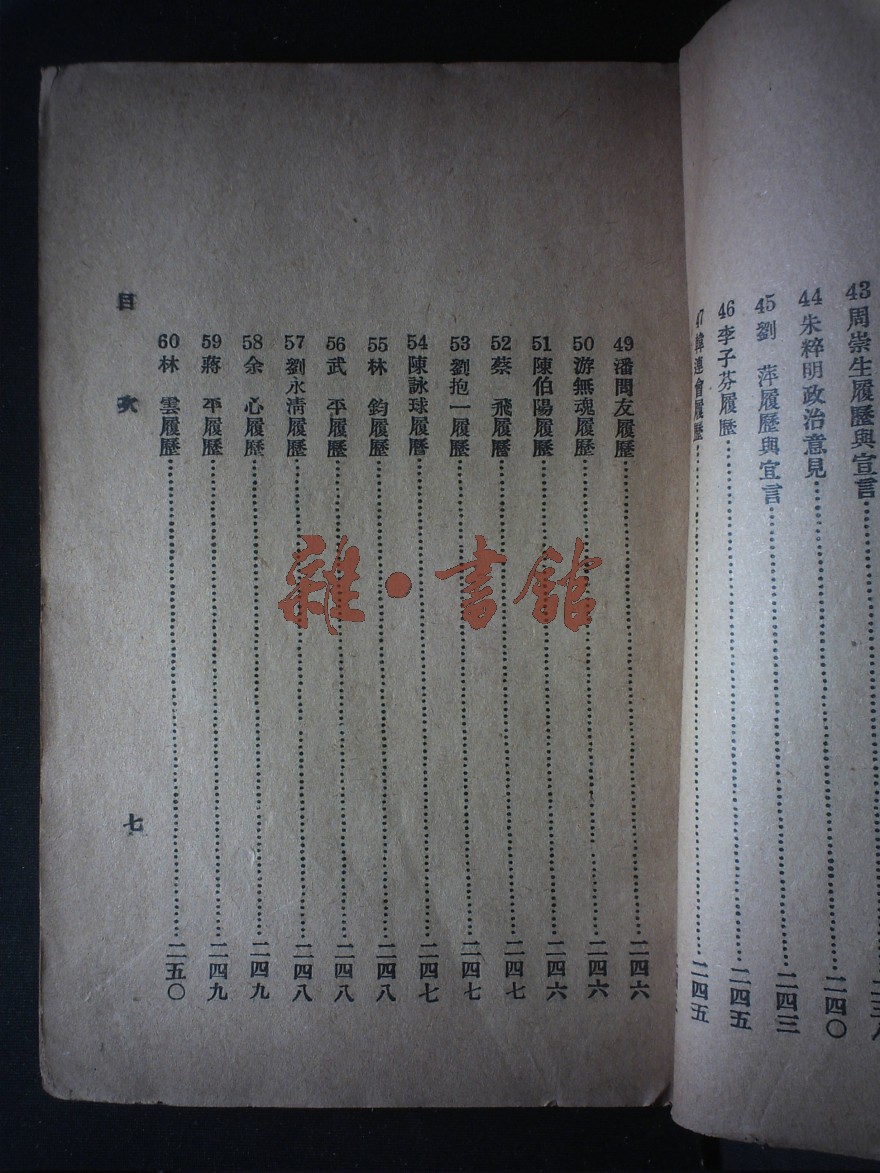 43 周崇生履歷與宣言……二三八
44 朱粹明政治意見……二四〇
45 劉　萍履歷與宣言……二四三
46 李子芬履歷……二四五
47 韓連會履歷……二四五
49 潘問友履歷……二四六
50 游無魂履歷……二四六
51 陳伯陽履歷……二四六
52 蔡　飛履曆……二四七
53 劉抱一履歷……二四七
54 陳詠球履曆……二四七
55 林　鈞履歷……二四八
56 武　平履歷……二四八
57 劉永清履歷……二四八
58 余　心履歷……二四九
59 蔣　平履歷……二四九
60 林　雲履歷……二五〇
目　次
七
雜·書館